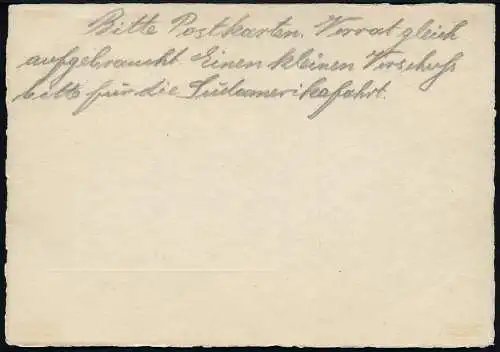 Bitte Postkarten. Vorrat gleich
aufgebraucht. Einen kleinen Vorschuß
bitte für die Südamerikafahrt.